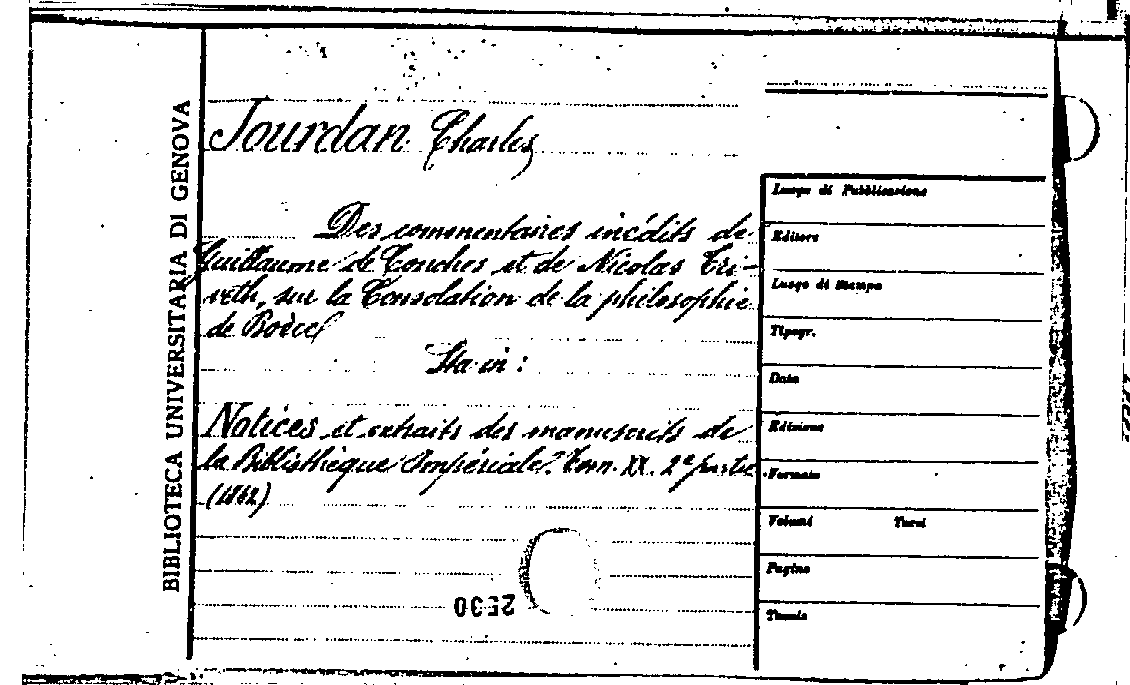 BIBLIOTECA UNIVERSITARIA DI GENOVA
Jourdan Charles
Des commentaires inédits de
Guillaume de Conches et de Nicolas Tri-
veth, sur la Consolation de la philosophie
de Boèce
Sta in:
Notices et extraits des manuscrits de
la Bibliothèque Impériale. Tom. XX. 2e partie
(1862)
2530
Luogo di Pubblicazione
Editore
Luogo di stampa
Tipogr.
Data
Edizione
Formato
Volumi Tomi
Pagine
Tavole